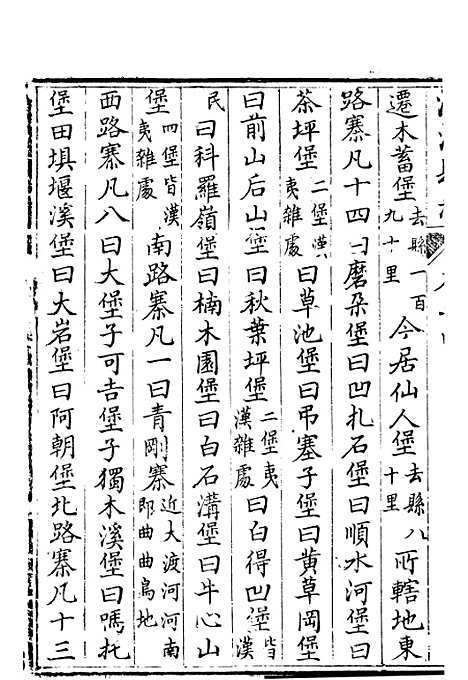 遷木蓄堡去縣一百九十里今居仙人堡去縣八十里所轄地東
路寨凡十四曰磨朶堡曰凹扎石堡曰順水河堡曰
茶坪堡二堡漢夷雜處曰草池堡曰吊寨子堡曰黄草岡堡
曰前山后山堡曰秋葉坪堡二堡夷漢雜處曰白得凹堡皆漢
民曰科羅嶺堡曰楠木園堡曰白石溝堡曰牛心山
堡四堡皆漢夷雜處南路寨凡一曰青剛寨近大渡河河南即曲曲烏地
西路寨凡八曰大堡子可吉堡子獨木溪堡曰嗎托
堡田埧堰溪堡曰大岩堡曰阿朝堡北路寨凡十三